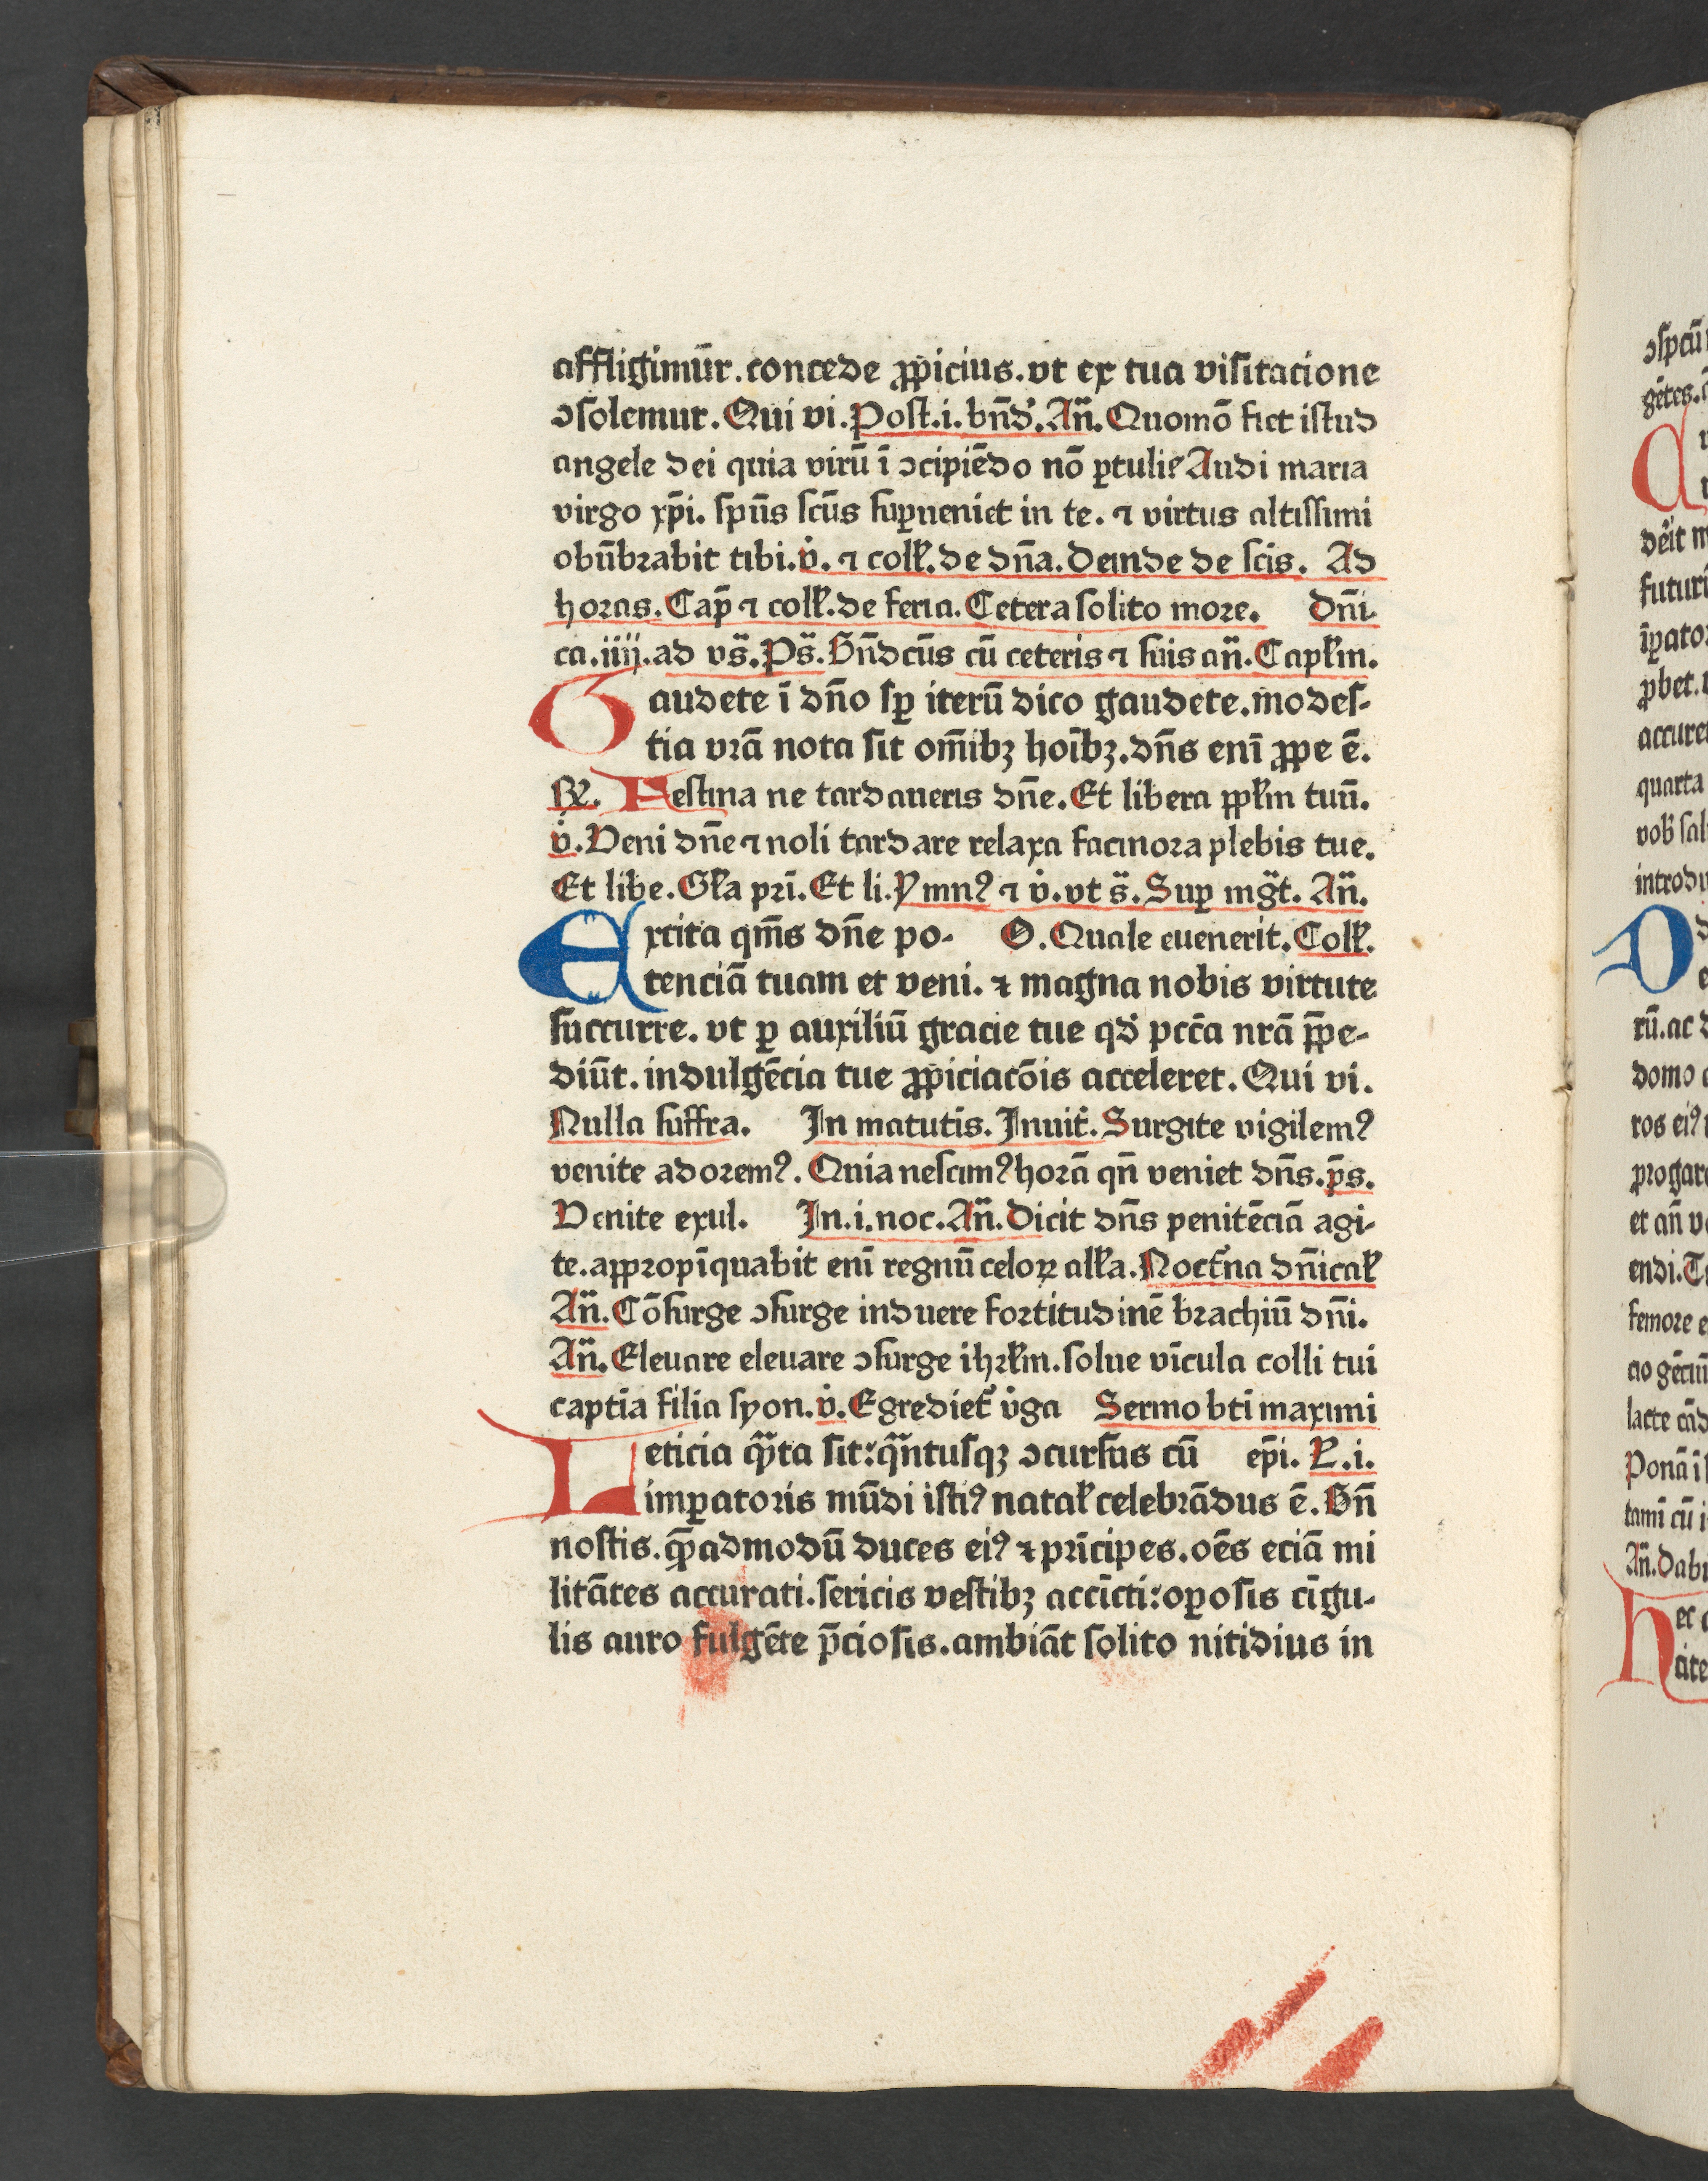 affligimūr.concede ꝓpicius.vt ex tua visitacione
ↄsolemur.Qui vi.Post.i.bn̄d̕.An̄.Quomō fiet istud
angele dei quia virū ī ↄcipiēdo nō ꝑtuli?Audi maria
virgo xp̄i.spūs scūs suꝑueniet in te.⁊ virtus altissimi
obūbrabit tibi.v̇.⁊ coll̄.de dn̄a.Deinde de scīs. Ad
horas.Cap̄ ⁊ coll̄.de feria.Cetera solito more. Dn̄i-
ca.iiij.ad vs̄.Ps̄.Bn̄dcūs cū ceteris ⁊ suis an̄.Capl̄m.
Gaudete ī dn̄o sꝑ iterū dico gaudete.modes-
tia vrā nota sit om̄ibꝫ hoībꝫ.dn̄s enī ꝓpe ē.
℞. Festina ne tardaueris dn̄e.Et libera ppl̄m tuū.
v̇.Veni dn̄e ⁊ noli tardare relaxa facinora plebis tue.
Et libe.Gl̄a prī.Et li.Ymnꝰ ⁊ v̇.vt s̄.Suꝑ mḡt. An̄.
Excita qm̄s dn̄e po- O.Quale euenerit.Coll̄.
tenciā tuam et veni.⁊ magna nobis virtute
succurre.vt ꝑ auxiliū gracie tue qd̕ pccā nrā p̄pe-
diūt.indulgēcia tue ꝓpiciacōis acceleret.Qui vi.
Nulla suffra. In matutīs.Inuit̄.Surgite vigilemꝰ
venite adoremꝰ.Quia nescimꝰ horā qn̄ veniet dn̄s.p̄s.
Venite exul. In.i.noc.An̄.Dicit dn̄s penitēciā agi-
te.appropīquabit enī regnū celoꝝ all̄a.Noct̄na dn̄ical̄
An̄.Cōsurge ↄsurge induere fortitudinē brachiū dn̄i.
An̄.Eleuare eleuare ↄsurge ihrl̄m.solue vīcula colli tui
captīa filia syon.v̇.Egrediet̄ v̇ga Sermo btī maximi
Leticia qͣ̄ta sit:qͣ̄ntusqꝫ ↄcursus cū ep̄i. L.i.
imꝑatoris mūdi istiꝰ natal̄ celebrādus ē.Bn̄
nostis.quēadmodū duces eiꝰ ⁊ prīcipes.oēs eciā mi
litātes accurati.sericis vestibꝫ accīcti:oꝑosis cīgu-
lis auro fulgēte p̄ciosis.ambiāt solito nitidius in
ↄspcū
gētes.
rū.ac
domo
ros eiꝰ
endi.
femore
lacte
Ponā
tamī cū
An̄.Dabi
futuri
quarta
introdu
accure